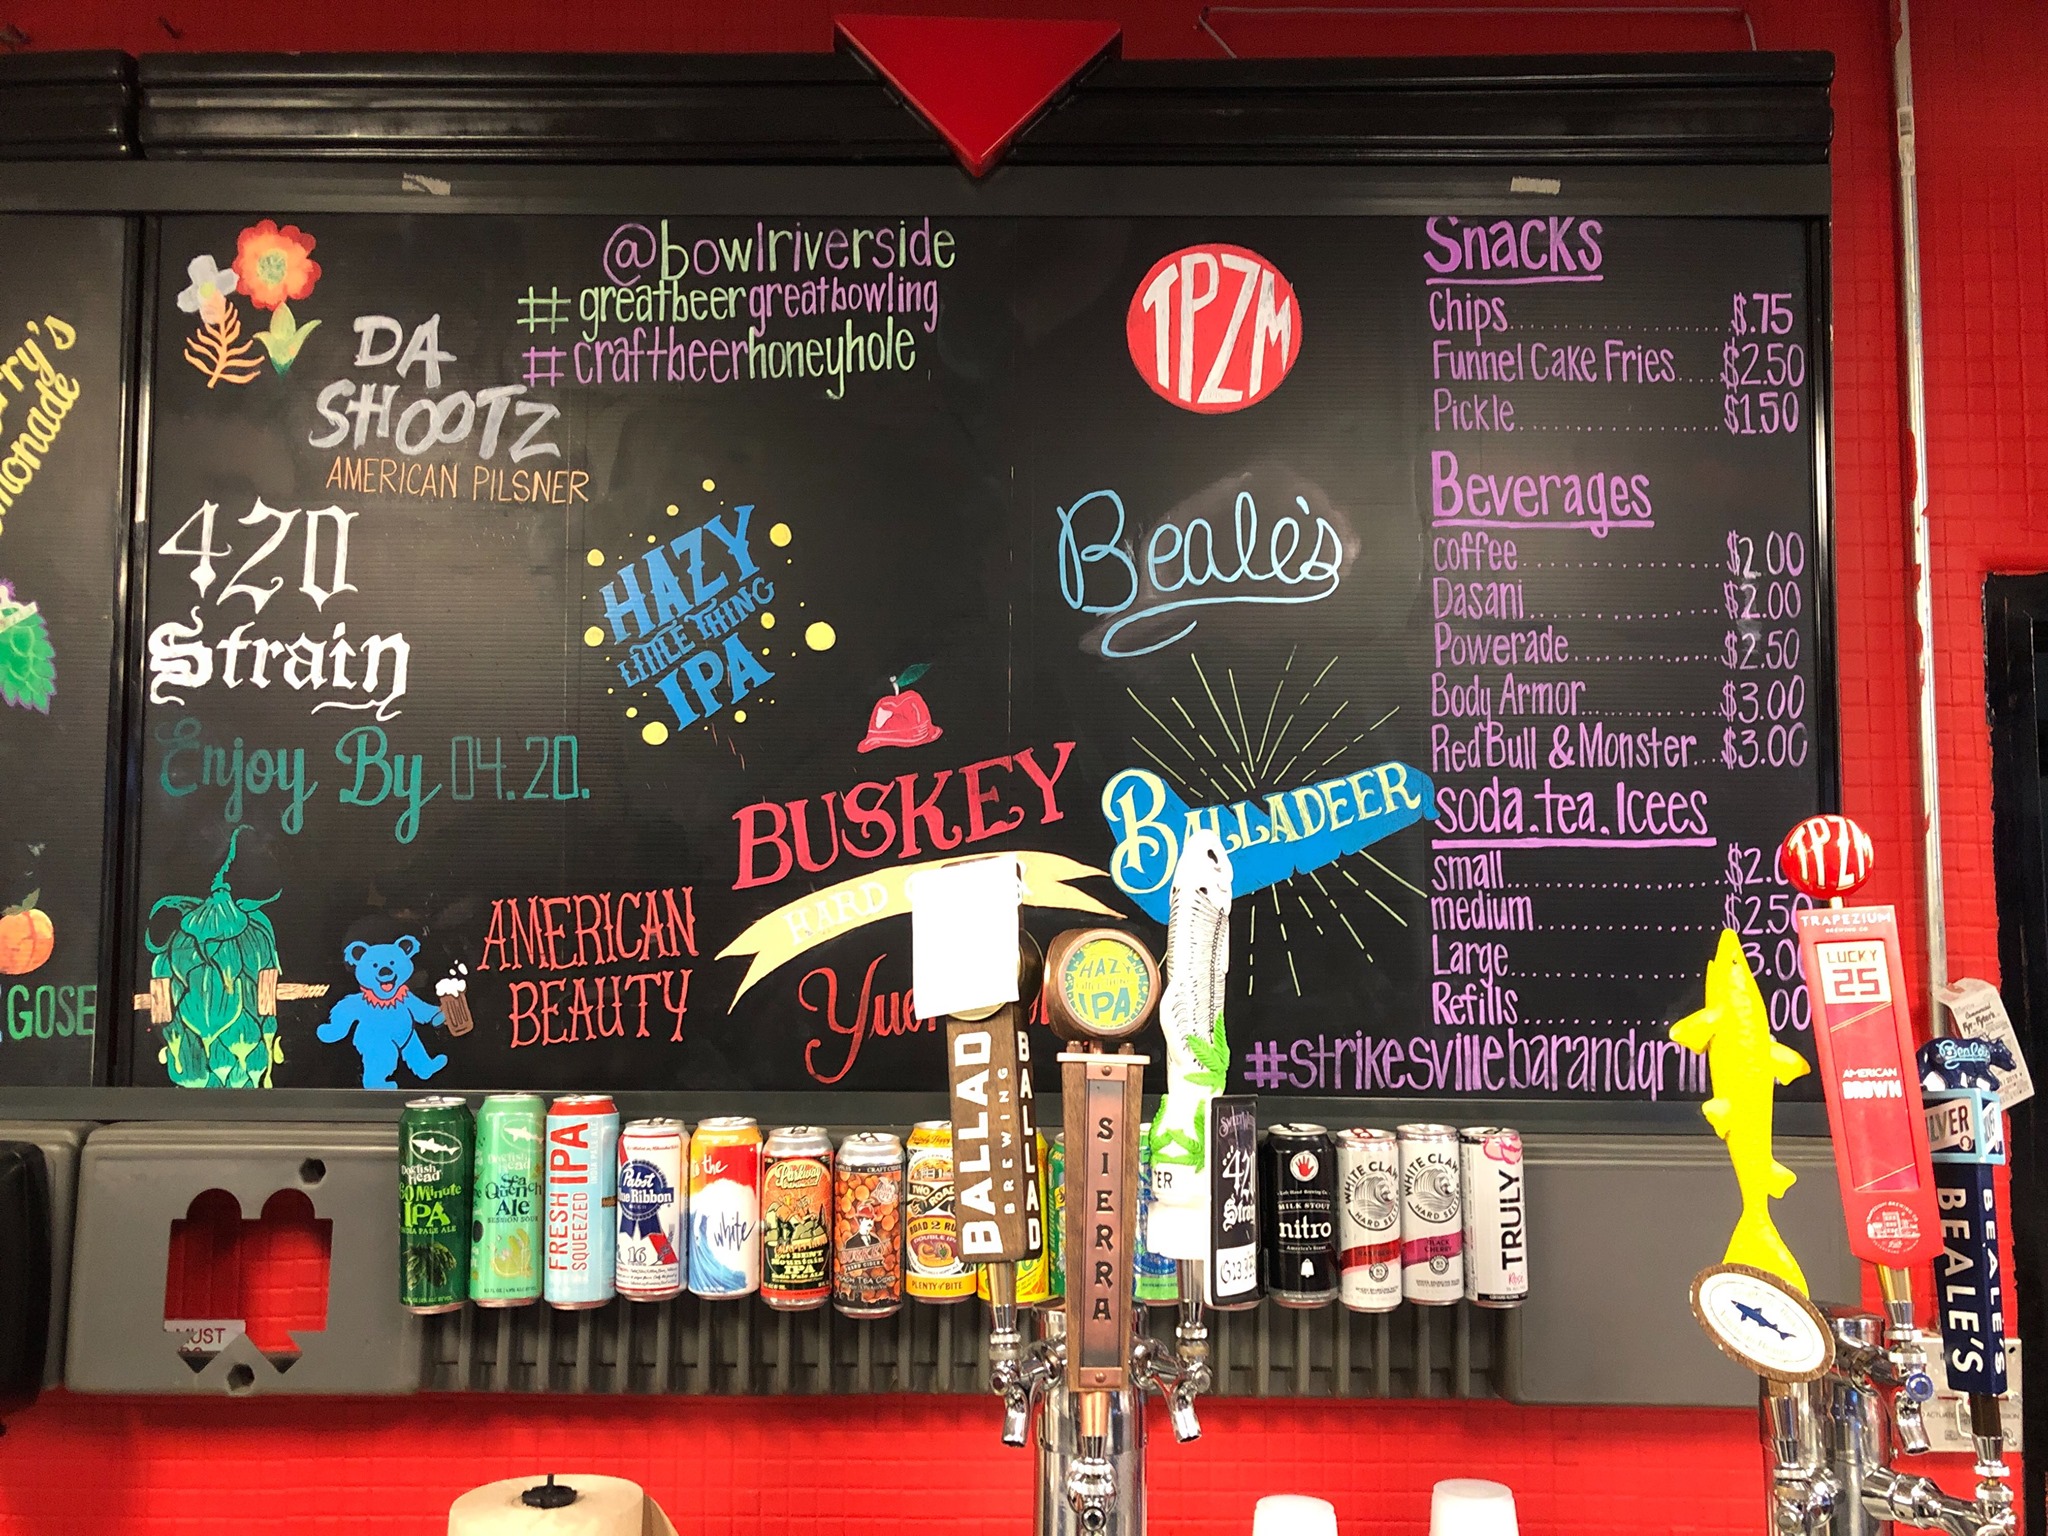 GOSE
DA
SHOOTZ
AMERICAN PILSNER
@bowlriverside
#greatbeergreatbowling
#craftbeerhoneyhole
420
Strain
Enjoy By 04.20.
HAZY
LITTLE THING
IPA
AMERICAN
BEAUTY
BUSKEY
HARD
TPZM
Beale's
BALLADEER
Snacks
Chips $.75
Funnel Cake Fries $2.50
Pickle $1.50
Beverages
coffee $2.00
Dasani $2.00
Powerade $2.50
Body Armor $3.00
Red Bull & Monster $3.00
soda.tea.Icees
small
medium $2.50
Large
Refills
#strikesvillebarandgrill
Dogfish
Head
60 Minute
IPA
Sea
Quench
Ale
SESSION SOUR
FRESH
SQUEEZED
IPA
Pabst
Blue Ribbon
the
white
Mountain
IPA
TWO ROADS
ROAD 2 RUIN
DOUBLE IPA
PLENTY OF BITE
BALLAD
BREWING
BALLAD
HAZY
IPA
SIERRA
420
Strain
G13
MILK STOUT
nitro
WHITE CLAW
HARD SELTZER
WHITE CLAW
HARD SELTZER
BLACK
CHERRY
TRULY
Rosé
TPZM
TRAPEZIUM
BREWING CO.
LUCKY
25
AMERICAN
BROWN
Beale's
BEALE'S
BEALE'S
MUST